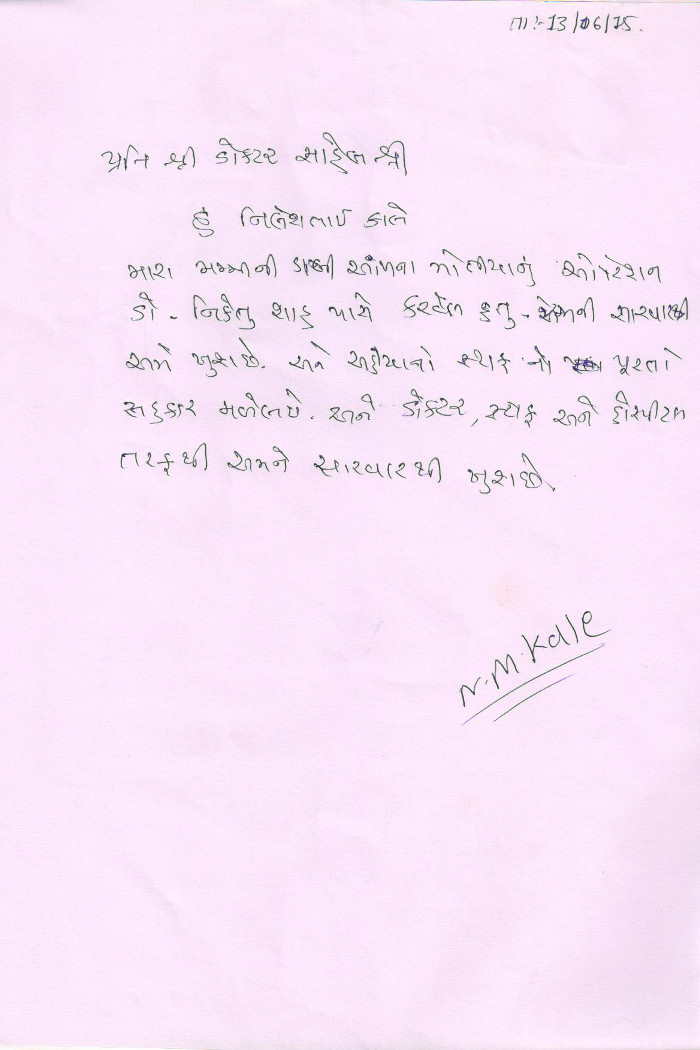 તા:-13/06/15.
પ્રતિ શ્રી ડોકટર સાહેબ શ્રી
હું નિલેશભાઈ કાલે
મારા મમ્મીની ડાબી આંખના મોતીયાનું ઓપરેશન
ડો. નિકેતુ શાહ પાસે કરાવેલ હતુ. તેમની સારવારથી
અમે ખુશ છે. અને અહીંયાનો સ્ટાફ નો પૂરતો
સહકાર મળેલ છે. અને ડોકટર, સ્ટાફ અને હોસ્પીટલ
તરફથી અમને સારવારથી ખુશ છે.
N.M.Kale